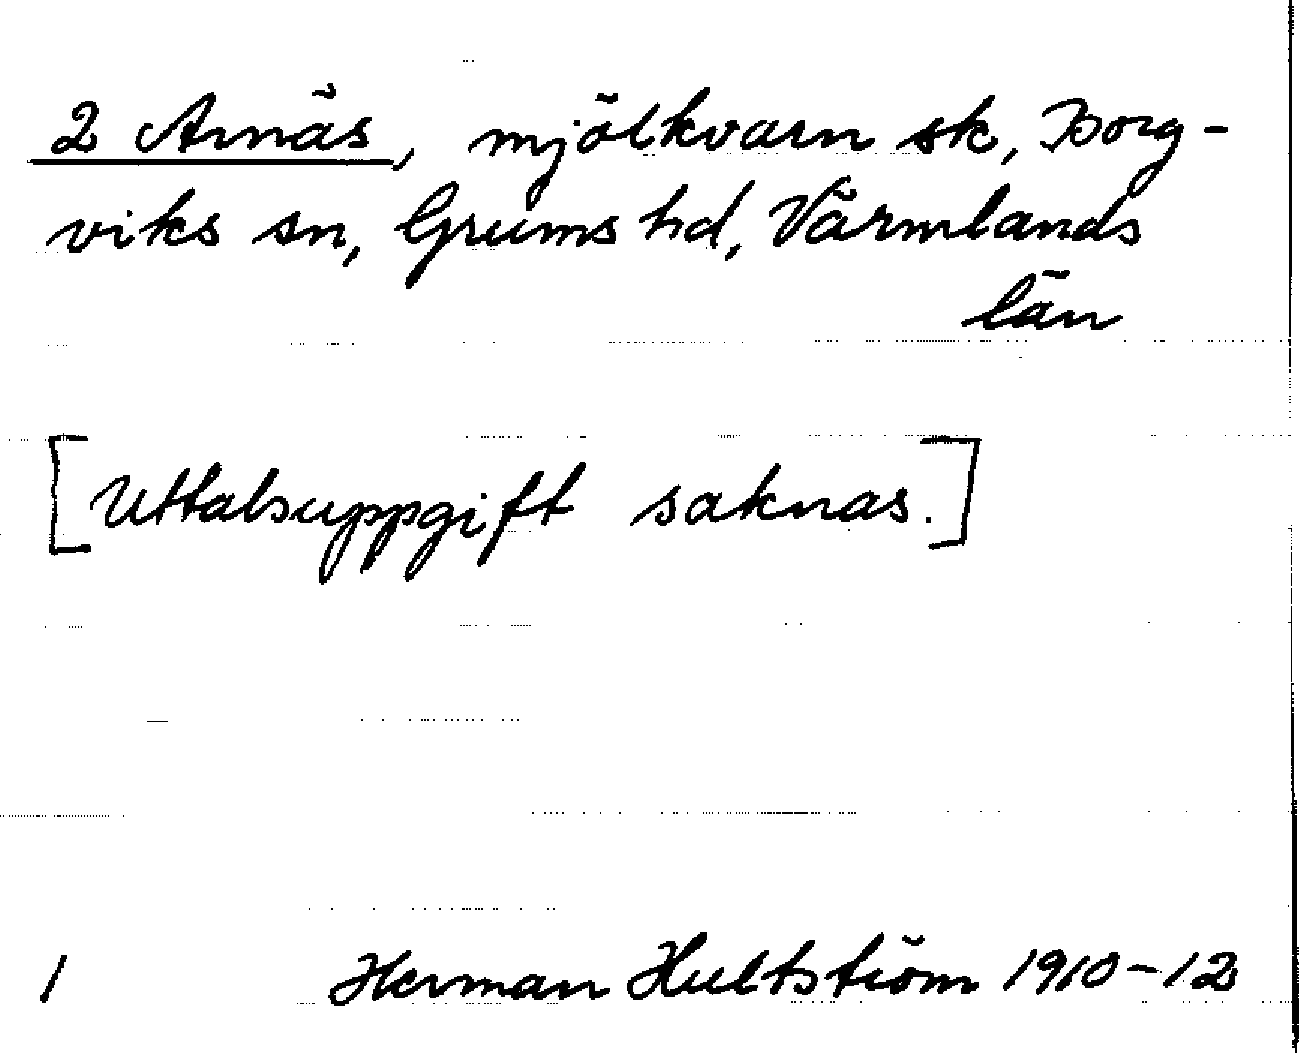 2 Arnäs, mjölkvarn sk, Borg-
viks sn, Grums hd, Värmlands
län
[Uttalsuppgift saknas.]
1 Herman Hultström 1910-12